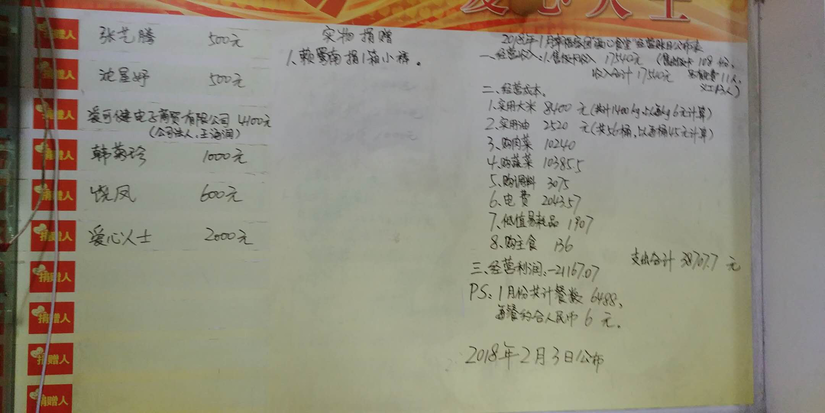 爱心人士
捐赠人 张艺腾 500元
捐赠人 沈星妤 500元
捐赠人 爱可健电子商贸有限公司 4100元
(公司法人:王海润)
捐赠人 韩菊珍 1000元
捐赠人 饶凤 600元
捐赠人 爱心人士 2000元
捐赠人
捐赠人
捐赠人
捐赠人
实物捐赠
1.赖蜀南捐1箱小裤。
一、经营收入:1.售饭卡收入 17540元
收入合计 17540元
二、经营成本
1.实用大米 8400元(共计1400kg,以每kg6元计算)
2.实用油 2520元(共56桶,以每桶45元计算)
3.购肉菜 10240
4.购蔬菜 10385.5
5.购调料 3075
6.电费 2043.57
7.低值易耗品 1907
8.购主食 136
支出合计 38707.7元
三、经营利润:-21167.07
PS:1月份共计餐数:6488,
每餐约合人民币6元。
2018年2月3日公布